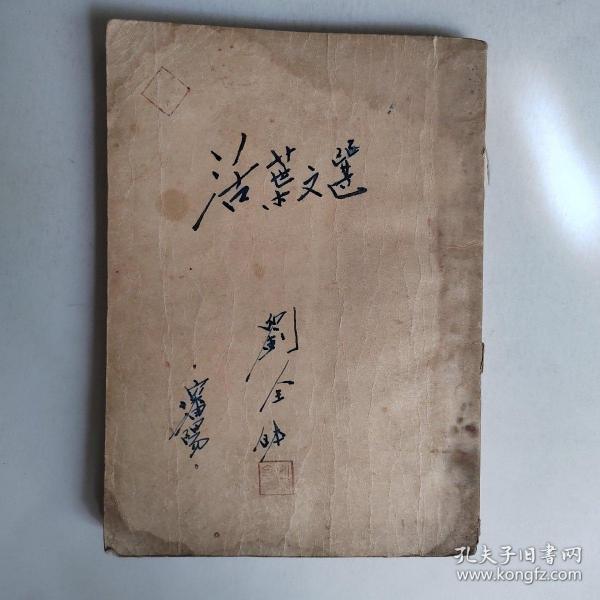 活葉文選
劉全
瀋陽
孔夫子旧书网
www.kongfz.com